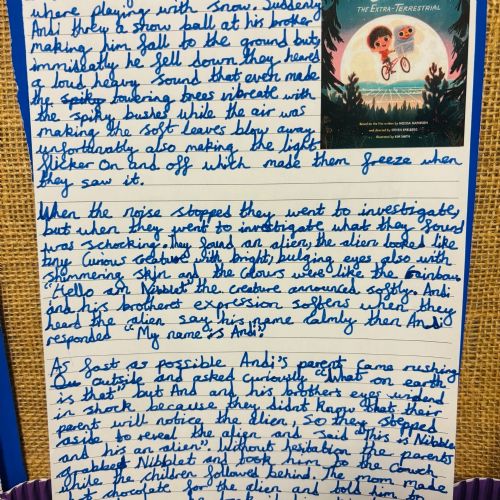 where playing with snow. Suddenly
Andi threw a snow ball at his brother
making him fall to the ground but
immiseatly he fell down they heard
a loud heavy sound that even made
the spiky towering trees vibreate with
the spiky bushes while the air was
making the soft leaves blow away
unfortunatly also making the light
flicker on and off which made them freeze when
they saw it.
THE EXTRA-TERRESTRIAL
Based on the film written by MELISSA MATHISON
and directed by STEVEN SPIELBERG
Illustrated by KIM SMITH
When the noise stopped they went to investigate,
but when they went to investigate what they found
was schocking. They found an alien, the alien looked like
tiny curious creature with bright, bulging eyes also with
shimmering skin and the colours were like the rainbow.
"Hello am Nibblet" the creature announced softly. Andi
and his brothers expression softens when they
heard the alien say his name calmly then Andi
responded "My name is Andi".
As fast as possible Andi's parent came rushing
outside and asked curiously "what on earth
is that" but And and his brothers eyes widend
in shock because they didnt know that their
parent will notice the alien, So they stepped
aside to reveal the alien and said "This is Nibble
and his an alien". Without hesitation the parents
grabbed Nibblet and took him to the couch
while the children followed behind. The mom made
hot chocolate for the alien and told him